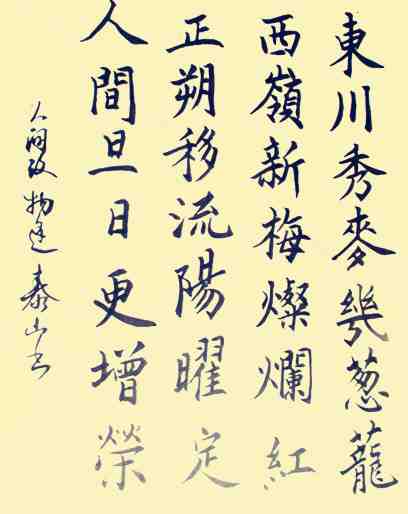 東川秀麥幾葱蘢
西嶺新梅燦爛紅
正朔移流陽曜定
人間旦日更增榮
人间改物 泰山书